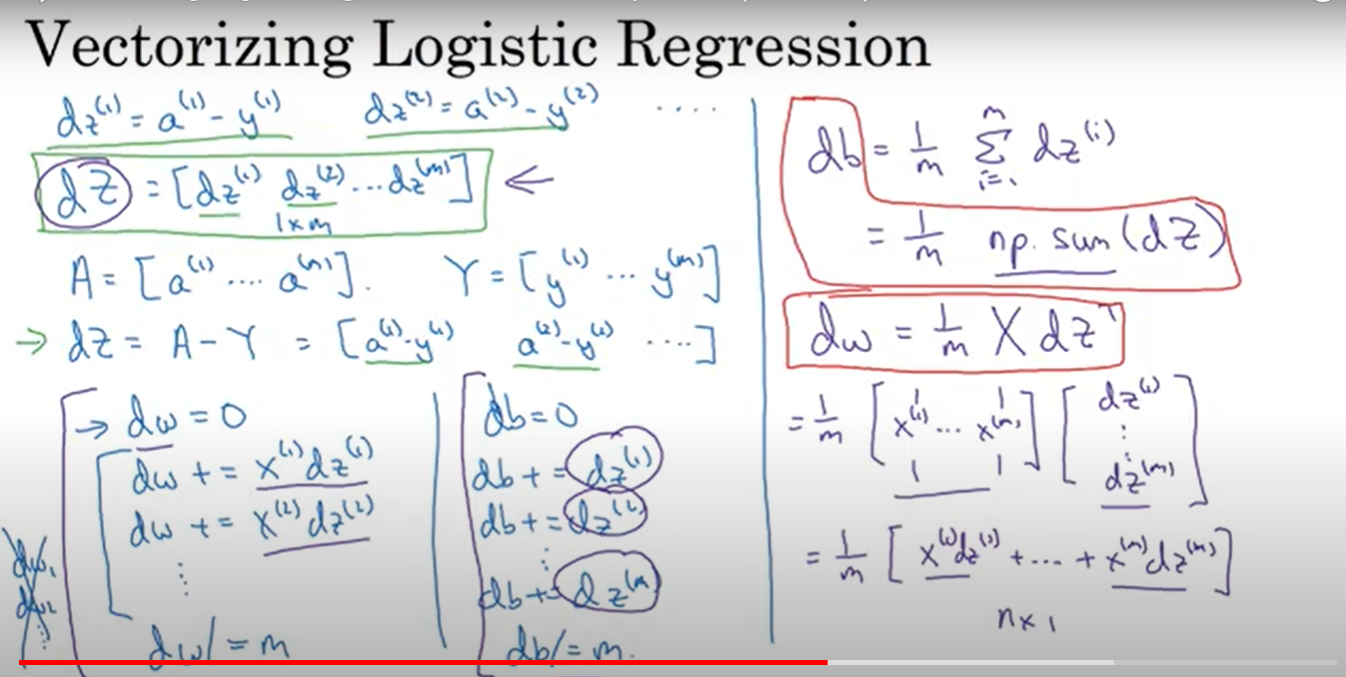 Vectorizing Logistic Regression
dz⁽¹⁾ = a⁽¹⁾ - y⁽¹⁾ dz⁽²⁾ = a⁽²⁾ - y⁽²⁾ ....
dZ = [dz⁽¹⁾ dz⁽²⁾ ... dz⁽ᵐ⁾] ←
1×m
A = [a⁽¹⁾ .... a⁽ᵐ⁾]. Y = [y⁽¹⁾ ... y⁽ᵐ⁾]
→ dZ = A - Y = [a⁽¹⁾-y⁽¹⁾ a⁽²⁾-y⁽²⁾ ....]
→ dw = 0
dw += x⁽¹⁾dz⁽¹⁾
dw += x⁽²⁾dz⁽²⁾
⋮
dw /= m
dw₁
dw₂
⋮
db = 0
db += dz⁽¹⁾
db += dz⁽²⁾
⋮
db += dz⁽ᵐ
db /= m.
db = 1/m Σ dz⁽ⁱ⁾
m
i=1
= 1/m np.sum(dZ)
dw = 1/m X dzᵀ
= 1/m [x⁽¹⁾ ... x⁽ᵐ⁾] [dz⁽¹⁾ ⋮ dz⁽ᵐ⁾]
= 1/m [x⁽¹⁾dz⁽¹⁾ + ... + x⁽ᵐ⁾dz⁽ᵐ⁾]
n×1